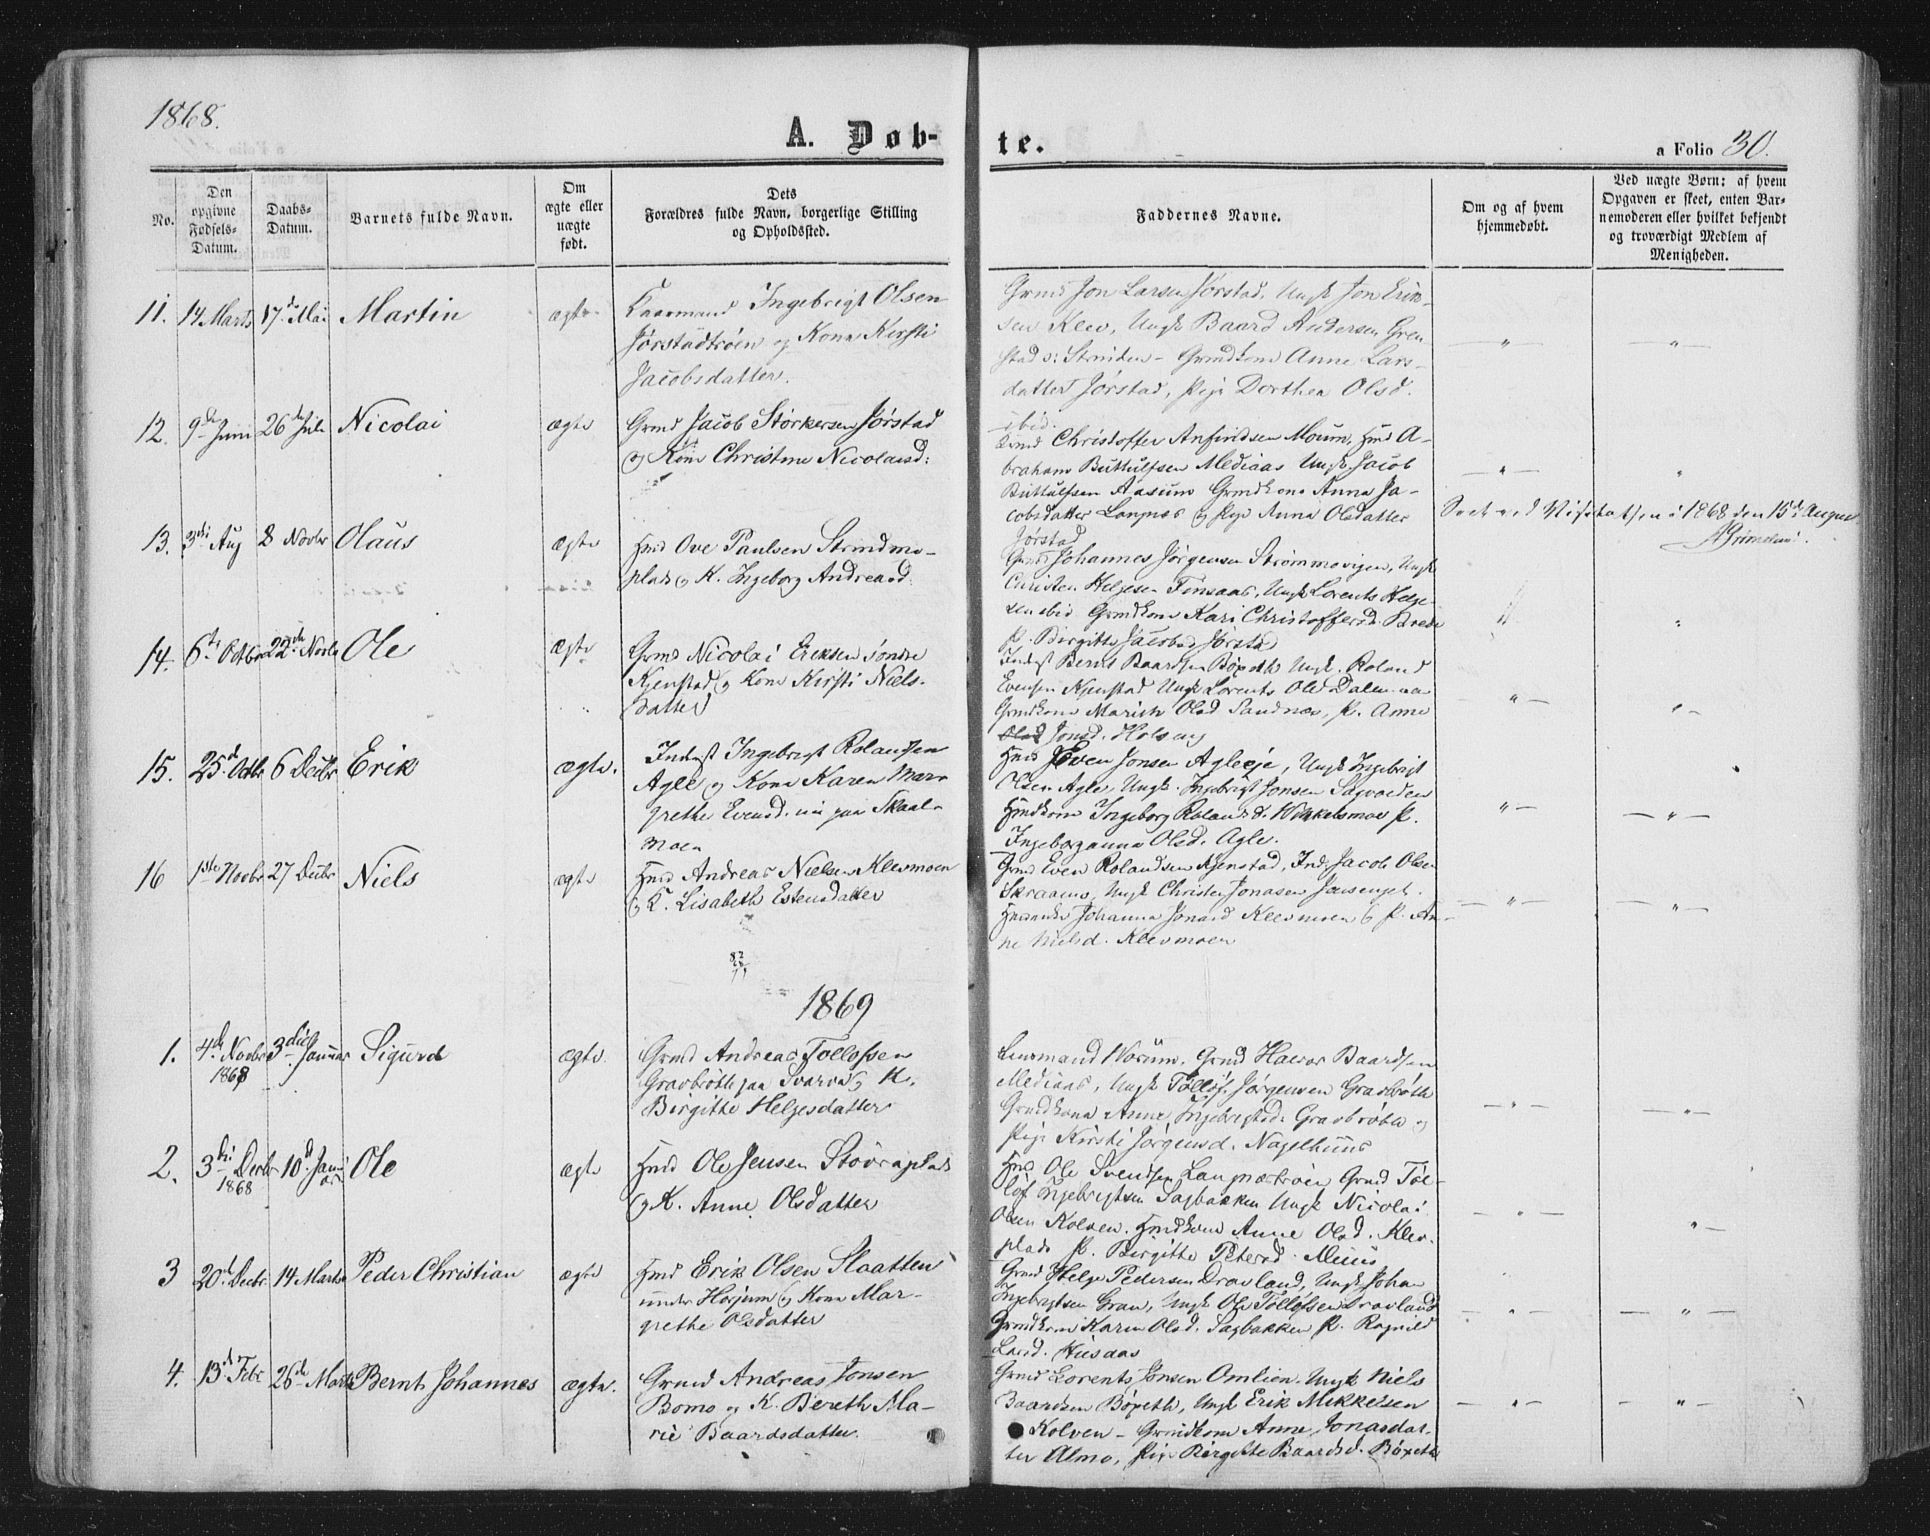 1868.
A. Døb-
te.
a Folio 30.
No.
Den
opgivne
Fødsels-
Datum.
Daabs-
Datum.
Barnets fulde Navn.
Om
ægte eller
uægte
født.
Dets
Forældres fulde Navn, borgerlige Stilling
og Opholdsted.
Faddernes Navne.
Om og af hvem
hjemmedøbt.
Ved uægte Børn: af hvem
Opgaven er skeet, enten Bar-
nemoderen eller hvilket bekjendt
og troværdigt Medlem af
Menigheden.
11. 14 Marts 17d Mai Martin ægte
Kaarmand Ingebrigt Olsen
Jørstadtrøen og Kona Kirsti
Jacobsdatter.
Grmd Jon Larsen Jørstad, Ungk Jon Erik-
sen Klev, Ungk Baard Andersen Gren
stad : Strinden - Grmdkone Anne Lars-
datter Jørstad, Pige Dorthea Olsd.
ibid.
12. 9de Juni 26de Juli Nicolai ægte
Grmd Jacob Størkersen Jørstad
og Kone Christine Nicolaisd:
Grmd Christoffer Anfindsen Moum, Hmd A-
braham Buttulfsen Mediaas Ungk Jacob
Buttulfsen Aasum Grmdkone Anna Ja-
cobsdatter Langnes og Pige Anna Olsdatter
Jørstad
Seet ved Visitatsen i 1868 den 15de August
Grimelund.
13. 3di Aug 8 Novbr Olaus ægte
Hmd Ove Paulsen Strindmo-
plads og K. Ingeborg Andreasd:
Grmd Johannes Jørgensen Strømmovigen, Ungk
Christen Helgesen Finsaas, Ungk Lorents Helge-
sen ibid Grmdkone Kari Christoffersd. Brede
P. Birgitte Jacobsd Jørstad
14. 6te Octbr 22de Novbr Ole ægte
Grmd Nicolai Eriksen søndre
Kjenstad og Kone Kirsti Niels-
datter
Inderst Bernt Baardsen Bøpeth Ungk. Roland
Evensen Kjenstad Ungk Lorents Olsd Dalemaa
Grmdkone Marith Olsd Sandnes, P. Anne
Olsd Jonsd. Kolsaas
15. 25d Octbr 6 Decbr Erik ægte.
Inderst Ingebrigt Rolandsen
Agle og Kone Karen Mar-
grethe Evensd. nu paa Skaal-
moen
Hmd Even Jonsen Agleeje, Ungk Ingebrigt
Olsen Agle, Ungk. Ingebrigt Jonsen Sagvolden
Hmdkone Ingeborg Rolandsd. Wekkelsmoe P.
Ingeborganna Olsd. Agle.
16 1ste Novbr 27 Decbr Niels ægte
Hmd Andreas Nielsen Klevmoen
og K. Lisabeth Estensdatter
Grmd Even Rolandsen Kjenstad, Ind. Jacob Olsen
Skraamo, Ungk Christen Jonasen Jonsenget.
Johanna Jonasd Klevmoen og P. An-
ne Nielsd. Klevmoen
1869
1. 4de Novbr 1868 3die Januar Sigurd ægte.
Grmd Andreas Tollofsen
Gravbrøtt paa Svarva og K.
Birgitte Helgesdatter
Lensmand Worum. Grmd Haevor Baardsen
Mediaas, Ungk Tollof Jørgensen Gravbrøtt
Grmdkone Anne Ingebrigtsd. Gravbrøtt og
Pige Kirsti Jørgensd. Nagelhuus
2. 3di Decbr 1868 10d Januar Ole ægte
Hmd Ole Jensen Støvraplads
og K. Anne Olsdatter
Hmd Ole Svendsen Langnæstrøen Grmd Tol-
lof Ingebrigtsen Sagbakken Ungk Nicolai
Olsen Kolven. Hmdkone Anne Olsd. Klev-
plads P. Birgitte Petersd. Muus
3 20d Decbr 14 Marts Peder Christian ægte
Hmd Erik Olsen Slaatten
under Horjum og Kone Mar-
grethe Olsdatter
Grmd Helge Pedersen Dravland, Ungk Johan
Ingebrigtsen Gran, Ungk Ole Tollofsen Dravland
Grmdkone Karen Olsd. Sagbakken P. Ragnild
Larsd. Huseaas
4. 13d Febr 26de Marts Bernt Johannes ægte.
Grmd Andreas Jonsen
Bomo og K. Bereth Ma-
rie Baardsdatter.
Grmd Lorents Jonsen Omlien. Ungk Niels
Baardsen Bøpeth, Ungk Erik Mikkelsen
Kolven - Grmdkone Anne Jonasdat-
ter Almo, Pige Birgitte Baardsd. Bøpeth